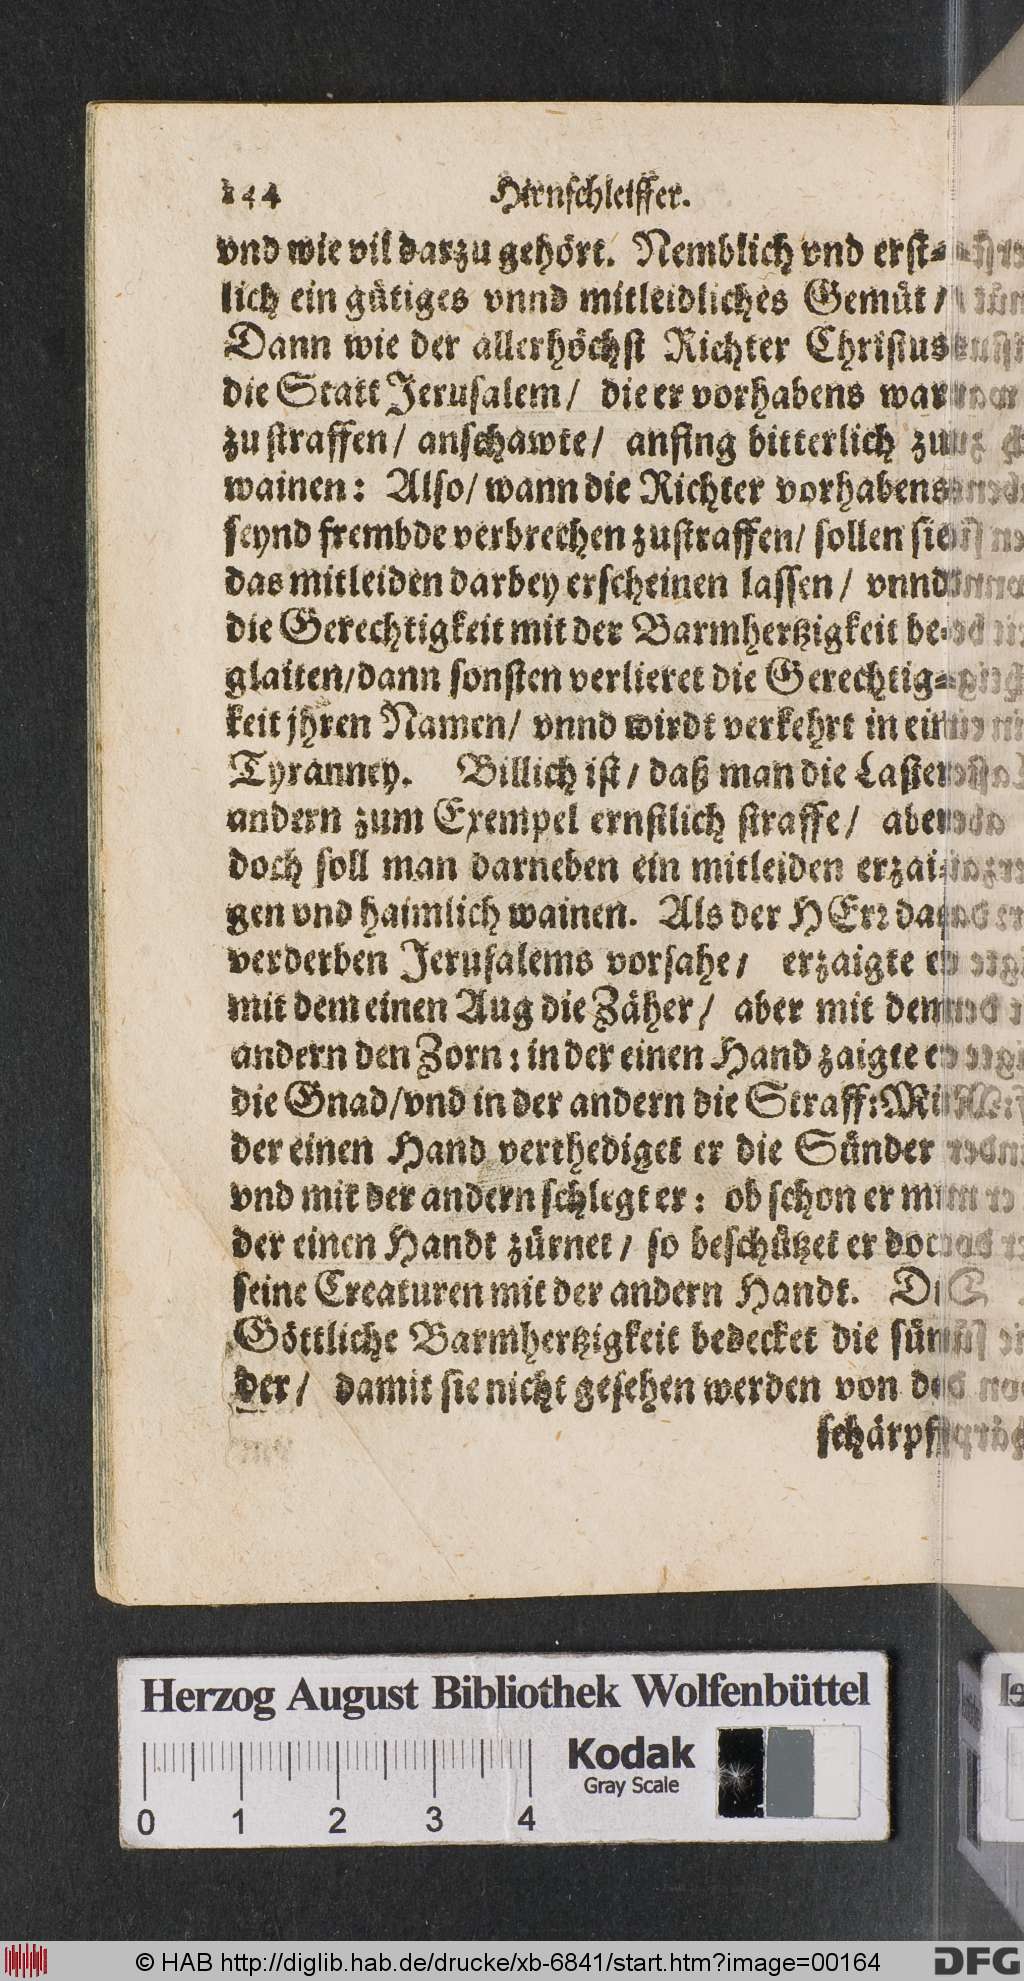 144 Hirnschleiffer.
vnd wie vil darzu gehört. Nemblich vnd erst-
lich ein gütiges vnnd mitleidliches Gemüt /
Dann wie der allerhöchst Richter Christus
die Statt Jerusalem / die er vorhabens war
zu straffen / anschawte / anfing bitterlich zu
wainen: Also / wann die Richter vorhabens
seynd frembde verbrechen zustraffen / sollen sie
das mitleiden darbey erscheinen lassen / vnnd
die Gerechtigkeit mit der Barmhertzigkeit be-
glaiten / dann sonsten verlieret die Gerechtig-
keit jhren Namen / vnnd wirdt verkehrt in ein
Tyranney. Billich ist / daß man die Laster
andern zum Exempel ernstlich straffe / aber
doch soll man darneben ein mitleiden erzai-
gen vnd haimlich wainen. Als der HErr das
verderben Jerusalems vorsahe / erzaigte er
mit dem einen Aug die Zäher / aber mit dem
andern den Zorn: in der einen Hand zaigte er
die Gnad / vnd in der andern die Straff: Mit
der einen Hand verthediget er die Sünder
vnd mit der andern schlegt er: ob schon er mit
der einen Handt zürnet / so beschützet er doch
seine Creaturen mit der andern Handt. Die
Göttliche Barmhertzigkeit bedecket die sün-
der / damit sie nicht gesehen werden von der
schärpff
Herzog August Bibliothek Wolfenbüttel
Kodak
Gray Scale
0 1 2 3 4
© HAB http://diglib.hab.de/drucke/xb-6841/start.htm?image=00164
DFG